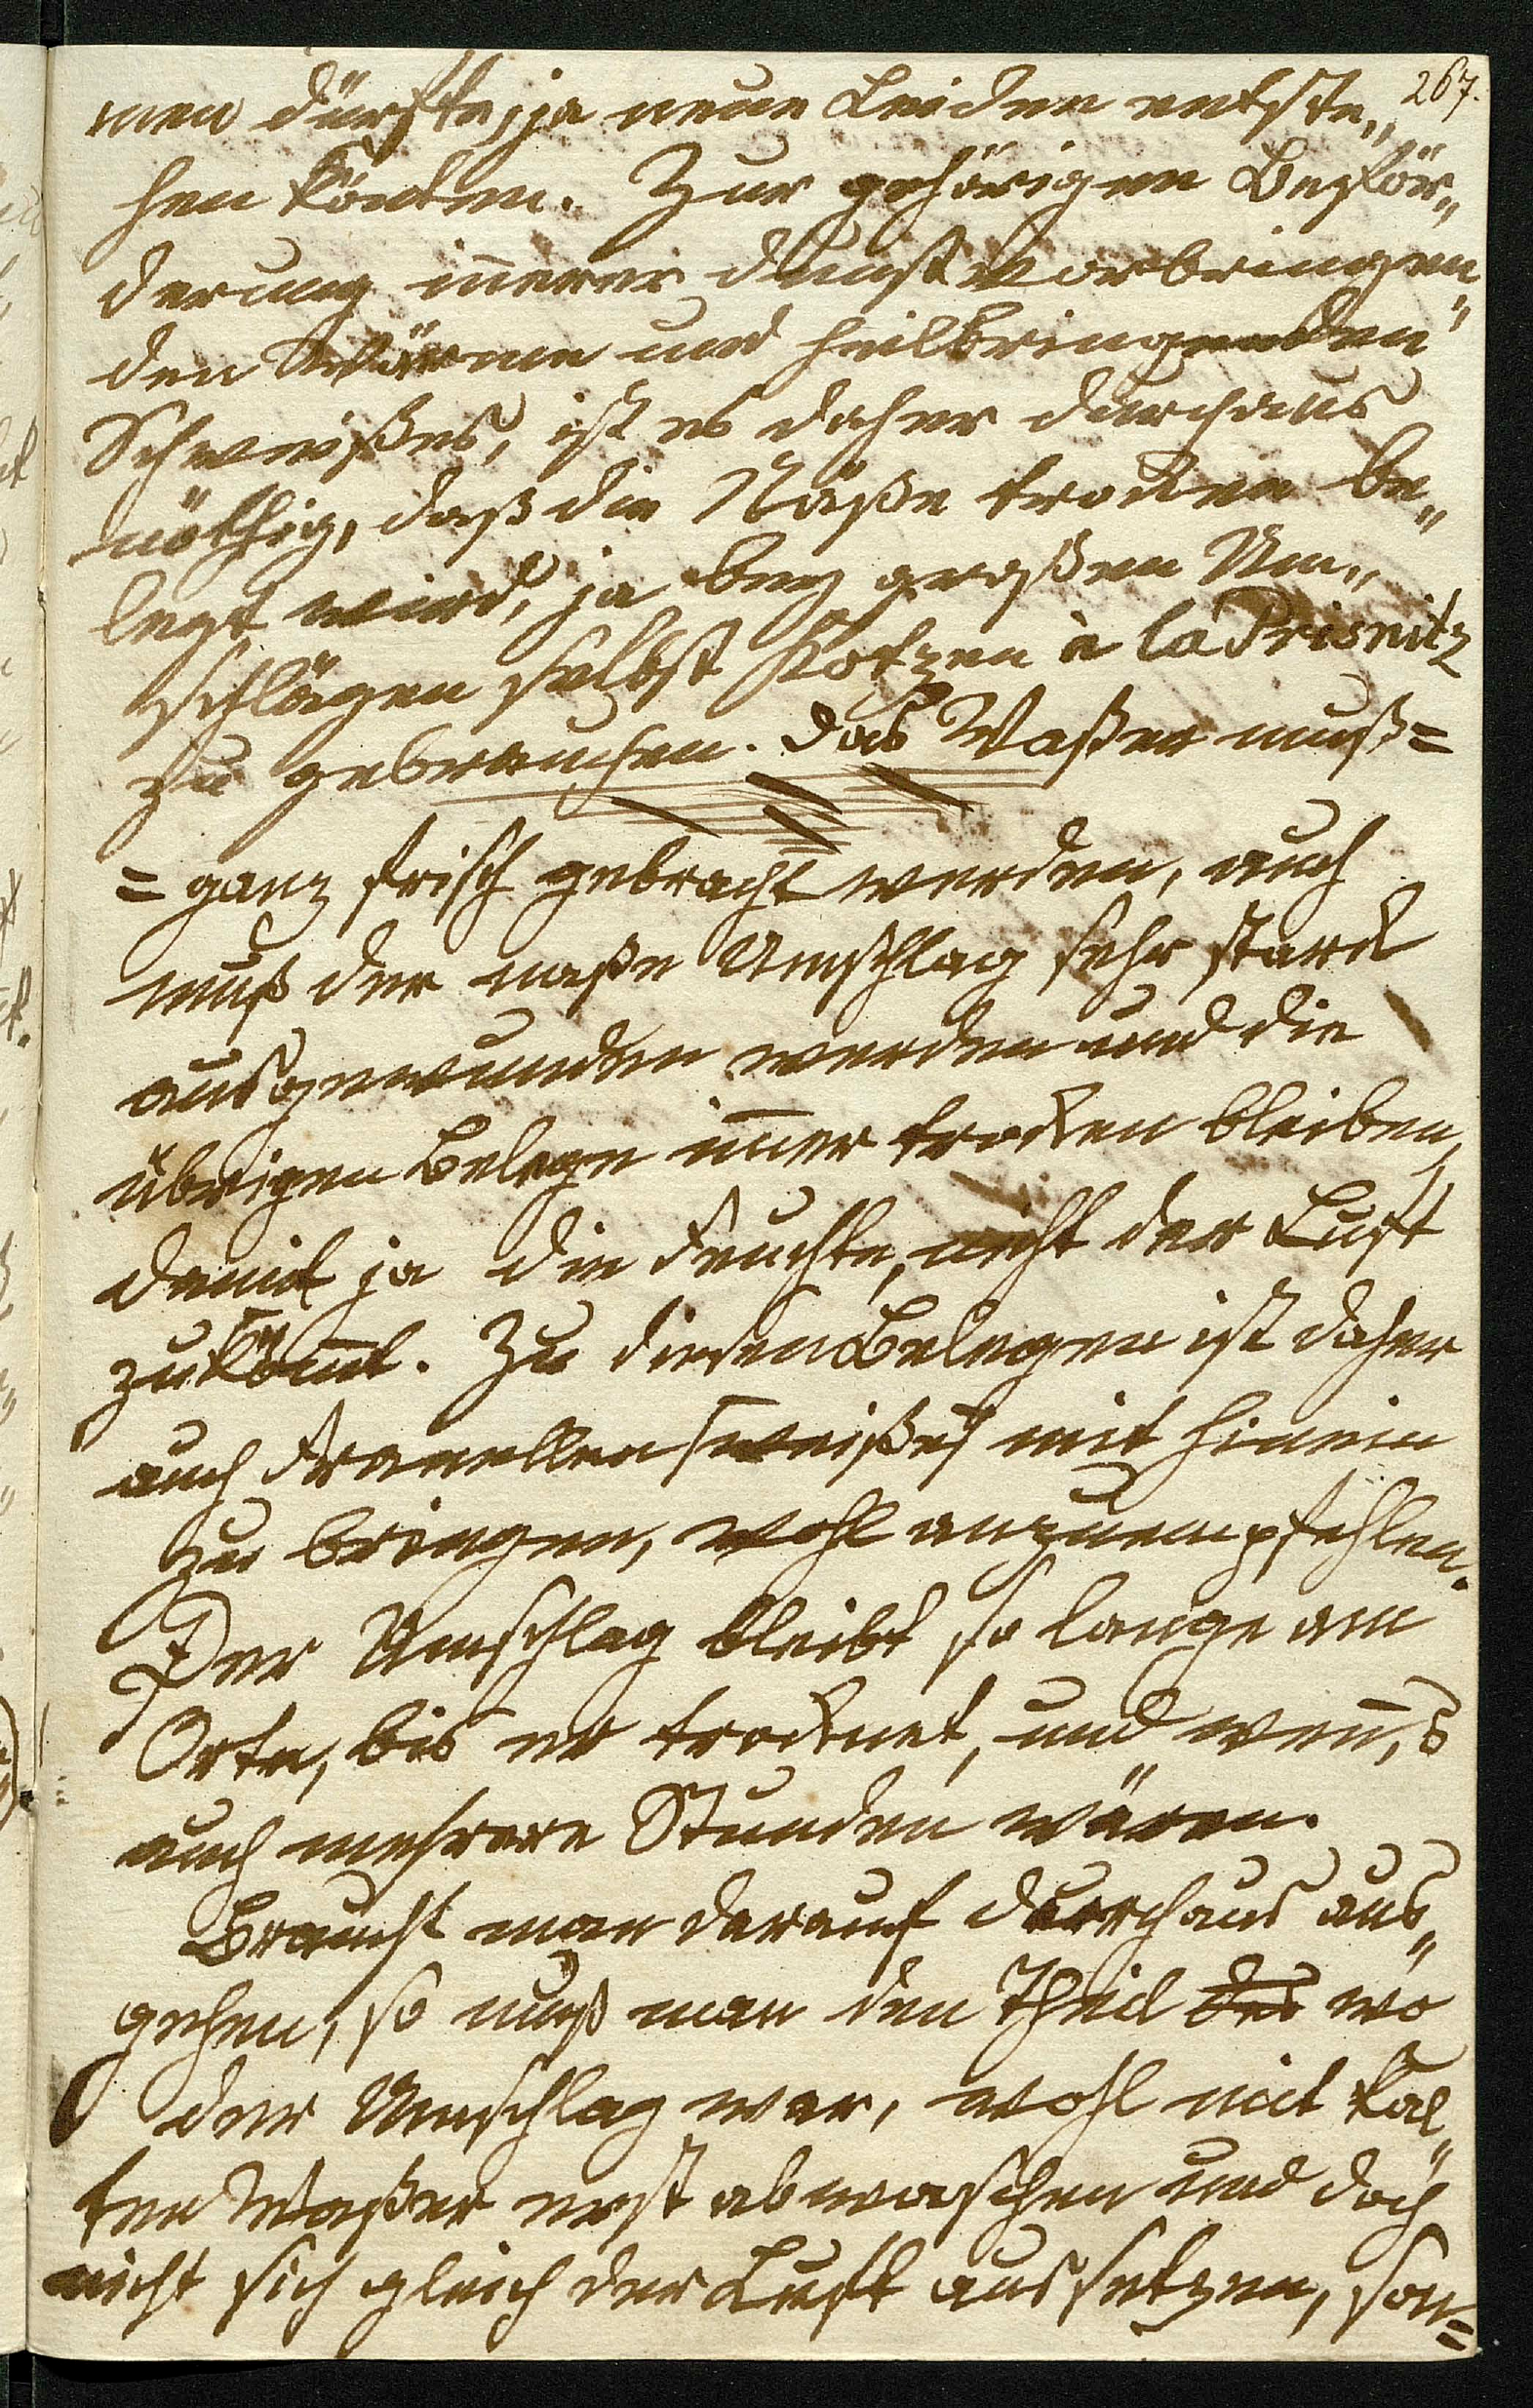 267.
men dürfte, ja neue Leiden entste„
hen könten. Zur gehörigen Beför„
derung iñerer dunstvorbringen„
den Wärme und heilbringenden
Schweißes, ist es daher durchaus
nöthig, daß die Näße trocken be„
legt wird, ja bey großen Um„
schlägen selbst Kotzen à la Prisnitz
zu gebrauchen. Das Waßer muß=
=ganz frisch gebracht werden, auch
muß der naße Umschlag sehr starck
ausgewunden werden und die
übrigen Belege im̄er trocken bleiben,
damit ja die Feuchte, nicht der Luft
zuköm̄t. Zu diesen Belegen ist daher
auch Franellen /:weißes:/ mit hinein
zu bringen, wohl anzuempfehlen.
Der Umschlag bleibt so lange am
Orte, bis er trocknet, und weñ,s
auch mehrere Stunden wären.
Braucht man darauf durchaus aus„
gehen, so muß man den Theil des wo
der Umschlag war, wohl mit kal„
ten Waßer erst abwaschen und doch
nicht sich gleich der Luft aussetzen, son=